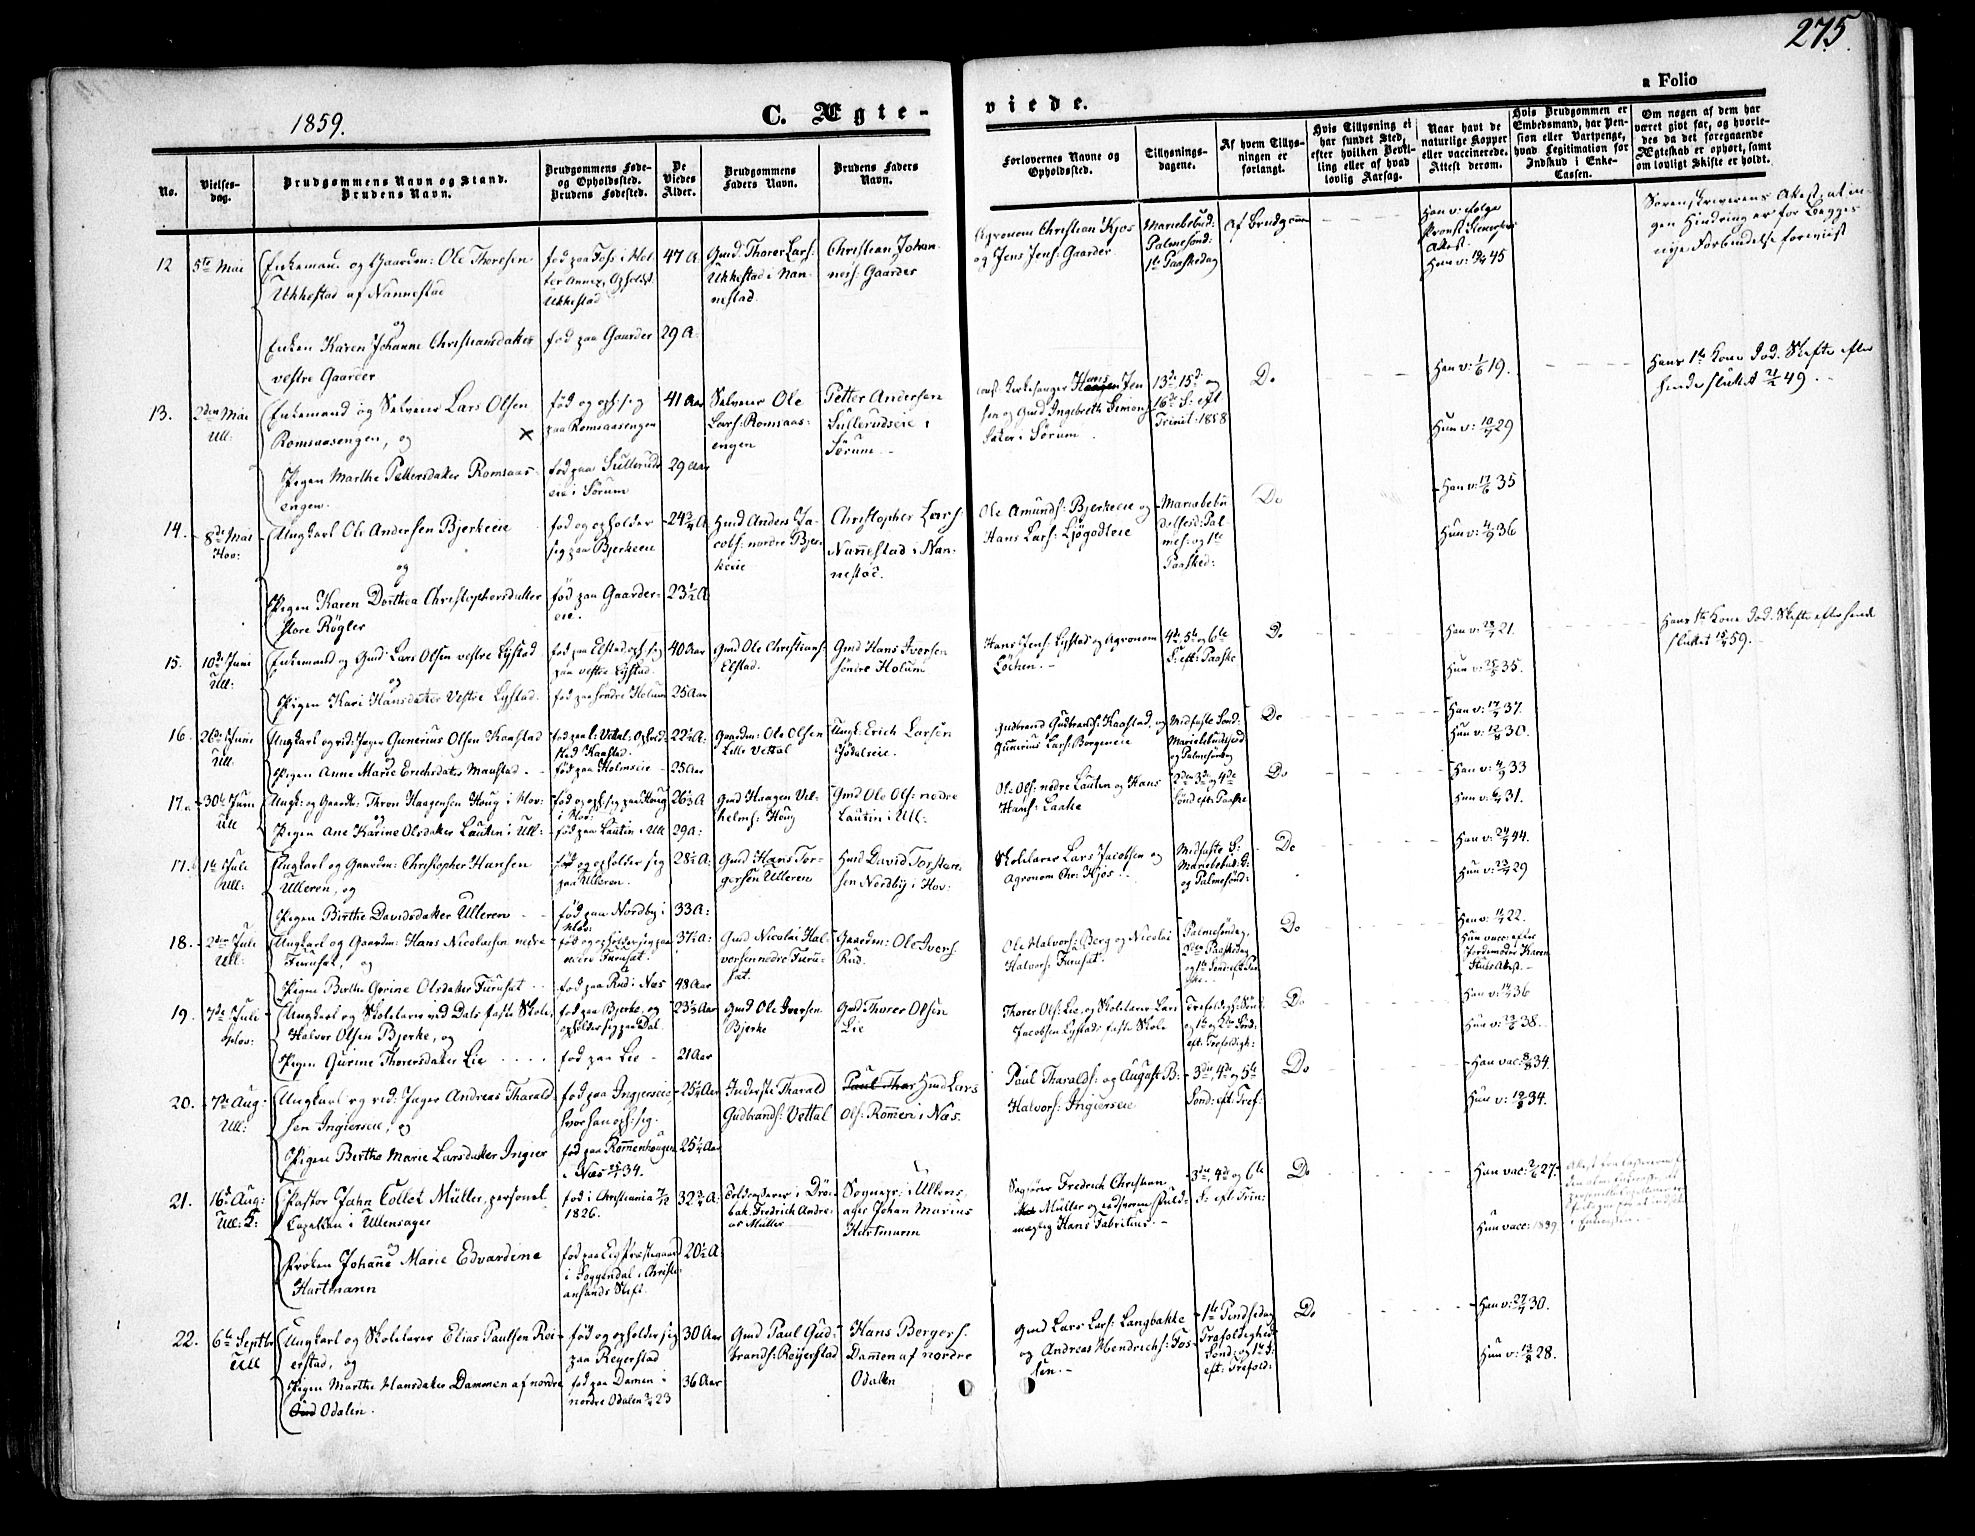 275.
a Folio
1859.
C. Ægte-
viede.
No.
Vielses-
dag.
Brudgommens Navn og Stand.
Brudens Navn.
Brudgommens Føde-
og Opholdssted.
Brudens Fødested.
De
Viedes
Alder.
Brudgommens
Faders Navn.
Brudens Faders
Navn.
Forlovernes Navne og
Opholdssted.
Tillysnings-
dagene.
Af hvem Tillys-
ningen er
forlangt.
Hvis Tillysning ei
har fundet Sted,
efter hvilken Bevil-
ling eller af hvad
lovlig Aarsag.
Naar havt de
naturlige Kopper
eller vaccinerede.
Attest derom.
Hvis Brudgommen er
Embedsmand, har Pen-
sion eller Vartpenge,
hvad Legitimation for
Indskud i Enke-
Cassen.
Om nogen af dem har
været givt før, og hvorle-
des da det foregaaende
Ægteskab er ophørt, samt
om lovligt Skifte er holdt.
12
5te Mai
Enkemand og Gaardm: Ole Thoresen
Ukkestad af Nannestad
og
Enken Karen Johanne Christiansdatter
vestre Gaarder
fød paa Foss i Hol-
ter Annex, Opholdst.
Ukkestad
fød paa Gaarder
47 A.
29 A.
Gmd. Thorer Lars:
Ukkestad i Nan-
nestad.
Christian Johan-
ness: Gaarder
Agronom Christian Kjos
og Jens Jens: Gaarder
Mariebebud:
Palmesønd:
1te Paaskedag
Af Brudgom
Attest.
Hun v: 45
Sorenskriverens Attest, at in-
gen Hindring er for Begges
nye Forbindelse foreviist
13.
2den Mai
Ull:
Enkemand og Selveier Lars Olsen
Romsaasengen, og
Pigen Marthe Pettersdatter Romsaas-
engen.
fød og oph: sig
paa Romsaasengen
fød paa Sullerud-
eie i Sørum
41 Aar
29 Aar
Selveier Ole
Lars: Romsaas-
engen
Petter Andersen
Sullerudseie i
Sørum
const. Kirkesanger Hans Jen
sen og Gmd Ingebreth Simens
i Sørum
13de 15de og
16de S: eft
Trinit: 1858
Do
Han v: 1/6 19.
Hun v: 10/7 29
Hans 1te Kone død. Skifte efter
hende sluttet 49.
14.
8de Mai
Hov:
Ungkarl Ole Andersen Bjerkeeie
og
Pigen Karen Dorthea Christophersdatter
store Røgler
fød og opholder
sig paa Bjerkeeie
fød paa Gaarder-
eie.
24 3/4 A
23 1/2 A
Hmd Anders Ja-
cobs: nordre Bjer-
keeie
Christopher Lars:
Nannestad i Nan-
nestad.
Ole Amunds: Bjerkeeie og
Hans Lars: Ljøgodteie
Mariæbebu
delsesd: Pal
mes: og 1te
Paasked:
Do
Han v: 17/6 35
Hun v: 4/9 36
15.
10de Juni
Ull:
Enkemand og Gmd: Lars Olsen vestre Lystad
og
Pigen Kari Hansdatter Vestre Lystad.
fød paa Elstad oph: sig
paa vestre Lystad.
fød paa søndre Holum
40 Aar
25 Aar
Gmd Ole Christians:
Elstad.
Gmd Hans Iversen
søndre Holum
Hans Jens: Lystad og Agronom
Løchen.
4de, 5te og 6te
S: eft: Paaske
Do
Han v: 21.
Hun v: 35.
Hans 1te Kone død. Skifte efter hende
sluttet 59.
16.
26de Juni
Ull
Ungkarl og rid: Jæger Gunerius Olsen Kaastad
og
Pigen Anne Marie Erichsdatter Maustad.
fød paa l: Vettal, Ophold-
sted Kaastad.
fød paa Holmseie
22 1/2 A.
25 Aar
Gaardm: Ole Olsen
Lille Vettal
Ungk: Erich Larsen
Jødalseie.
Gudbrand Gudbrands: Kaastad, og
Gunerius Lars: Borgeneie
Midfaste Sønd:
Mariebebudelsesd
og Palmesøndag
Do
Han v: 17/7 37.
Hun v: 12/8 30.
17.a
30te Juni
Ull
Ungk: og Gaardbr: Thron Haagensen Houg i Hov:
og
Pigen Ane Karine Olsdatter Lautin i Ull:
fød og oph: sig paa Houg
i Hov:
fød paa Lautin i Ull
26 1/2 A
29 A:
Gmd Haagen Vil-
helms: Houg
Gmd Ole Ols: nedre
Lautin i Ull:
Ole Ols: nedre Lautin og Hans
Hans: Laake
2den 3die og 4de
Sønd eft: Paaske
Do
Han v: 4/9 33
Hun v: 31.
17.b
1te Juli
Ull:
Ungkarl og Gaardm: Christopher Hansen
Ulleren, og
Pigen Birthe Davidsdatter Ulleren
fød og opholder sig
paa Ulleren.
fød paa Nordby i
Hov:
28 1/2 A:
33 A:
Gmd Hans Tor-
gersen Ulleren
Hmd David Torsten-
sen Nordby i Hov:
Skolelærer Lars Jacobsen og
Agronom Chr: Kjos.
Midfaste S:
Mariebebud: D:
og Palmesønd:
Do
Han v: 44.
Hun v: 29
18.
2den Juli
Ull.
Ungkarl og Gaardm: Hans Nicolaisen nedre
Furuset, og
Pigen Birthe Gorine Olsdatter Furuset
fød og opholder sig paa
nedre Furuset.
fød paa Rud i Næs
37 1/2 A:
48 Aar
Gmd Nicolai Hal-
versen nedre Furu-
set.
Gaardm: Ole Ivers:
Rud.
Ole Halvors: Berg og Nicolai
Halvors: Furuset.
Palmesøndag,
2den Paaskedag
og 1te Sønd eft Paa
ske.
Do
Han v: 22.
Hun vac: efter
Jordemoder Karen
Huus Attest.
19.
7de Juli
Hov:
Ungkarl og Skolelærer ved Dals faste Skole,
Halvor Olsen Bjerke, og
Pigen Gurine Thorersdatter Lie
fød paa Bjerke, og
opholder sig paa Dal.
fød paa Lie
23 1/2 Aar
21 Aar
Gmd Ole Iversen
Bjerke
Gmd Thorer Olsen
Lie
Thorer Ols: Lie, og Skolelærer Lars
Jacobsen Lystads faste Skole
Trefoldigh: Sønd.
og 1te og 2den Sønd:
eft: Trefoldigh:
Do
Han v: 36
Hun v: 38.
20.
7de Aug.
Ull:
Ungkarl og rid: Jæger Andreas Tharald-
sen Ingierseie, og
Pigen Birthe Marie Larsdatter Ingier
fød paa Ingjerseie,
hvor han oph: sig.
fød paa Rømmenhougen
i Næs 34.
25 1/4 Aar
25 1/4 Aar
Inderste Tharald
Gudbrands: Vettal
Paul Thar Hmd Lars
Ols: Rømmen i Næs.
Paul Tharalds: og August B:
Halvors: Ingierseie
3die, 4de og 5te
Sønd: eft: Tref:
Do
Han vac: 8/8 34.
Hun v: 19/8 34.
21.
16de Aug:
Ull: S:
Pastor Jahn Collet Müller, personel
Capellan i Ullensager
og
Frøken Johanne Marie Edvardine
Hartmann
fød i Christiania
1826.
fød paa Eig Præstegaard
i Soggendal i Christi-
ansands Stift.
32 3/4 A:
20 1/2 A:
Toldkasserer i Drø-
bak Fredrich Andre-
as Müller
Sognepr: i Ullens-
ager Johan Marius
Hartmann
Sagfører Fredrich Christian
Müller og cadsnom fuld-
mægtig Hans Fabritius.
3die, 4de og 6te
S: eft: Trin:
Do
Han vac: 27.
Hun vacc: 1839
22.
6te Septbr
Ull
Ungkarl og Skolelærer Elias Paulsen Rei-
erstad, og
Pigen Marthe Hansdatter Dammen af nordre
Odalen.
fød og opholder sig
paa Reyerstad
fød paa Damen i
nordre Odalen 23
30 Aar
36 Aar
Gmd Paul Gud-
brands: Reyerstad
Hans Bergers:
Dammen af nordre
Odalen
Gmd Lars Lars: Langbakke
og Andreas Hendrichs: Fos-
sen.
1te Pindsedag
Trefoldigheds
Sønd: og 1te S:
eft: Trefold:
Do
Han v: 27/7 30.
Hun v: 13/8 28.